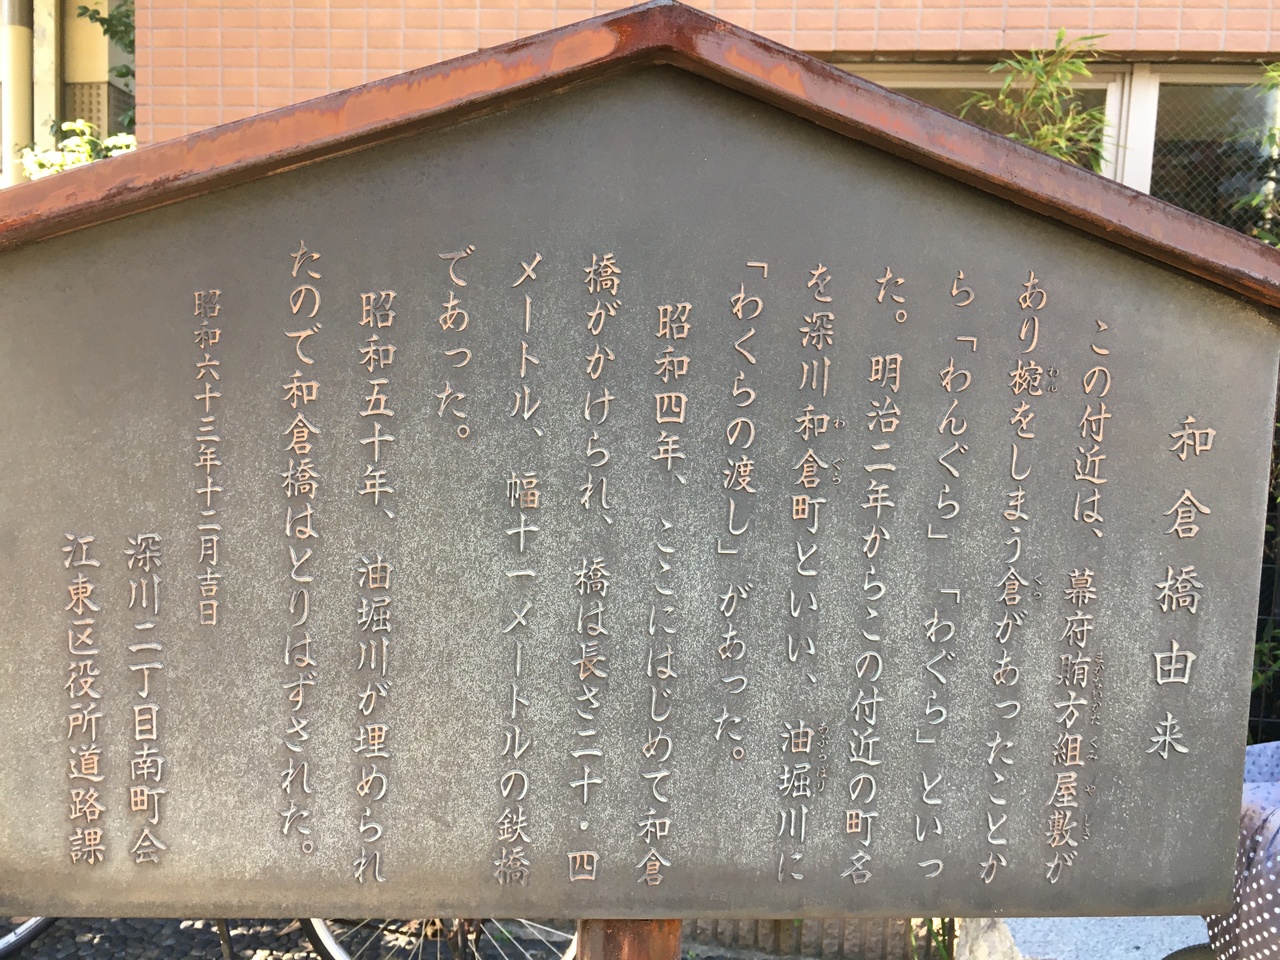 和倉橋由来
この付近は、幕府賄方組屋敷が
あり椀をしまう倉があったことか
ら「わんぐら」「わぐら」といっ
た。明治二年からこの付近の町名
を深川和倉町といい、油堀川に
「わくらの渡し」があった。
昭和四年、ここにはじめて和倉
橋がかけられ、橋は長さ二十・四
メートル、幅十一メートルの鉄橋
であった。
昭和五十年、油堀川が埋められ
たので和倉橋はとりはずされた。
昭和六十三年十二月吉日
深川二丁目南町会
江東区役所道路課